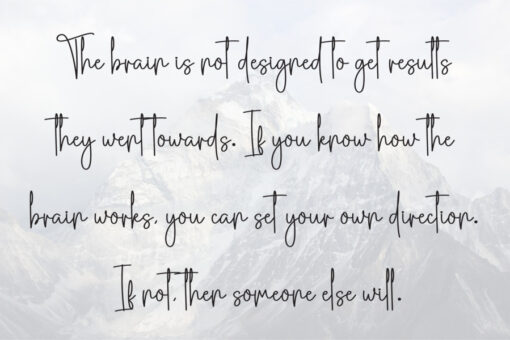 The brain is not designed to get results
they went towards. If you know how the
brain works, you can set your own direction.
If not, then someone else will.